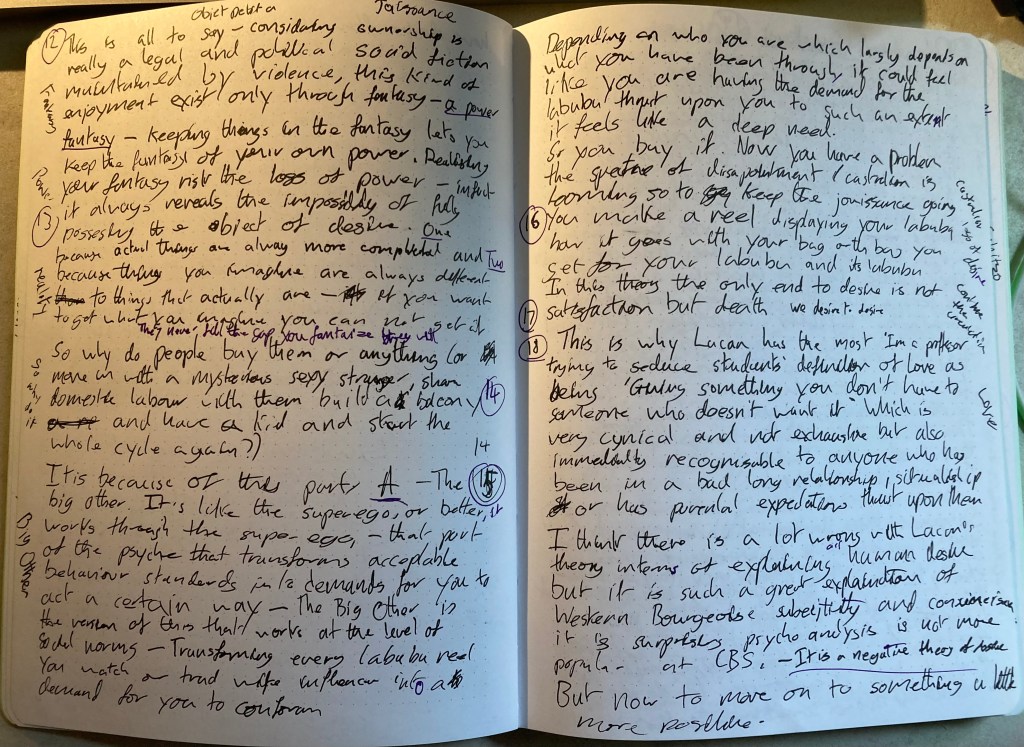 Objet petit a Jouissance
12 This is all to say - considering ownership is
really a legal and political social fiction
maintained by violence, this kind of
enjoyment exist only through fantasy - a power
fantasy - keeping things in the fantasy lets you
keep the funtasy of your own power. Realising
your fantasy risk the loss of power - infact
it always reveals the impossibility of fully
13 possessing the object of desire. One
because actual things are alway more complicated and Two
because things you imagine are always different
to things that actually are - if you want
to get what you imagine you can not get it
They never fill the gap you fantasize they will
So why do people buy them or anything (or
move in with a mysterious sexy stranger, share
domestic labour with them build a balcony 14
and have a kid and start the
whole cycle again?)
14
It is because of this part A - The 15
big Other. It's like the superego, or better, it
works through the super-ego, - that part
of the psyche that transforms acceptable
behaviour standards into demands for you to
act a certain way - The Big Other is
the version of this that works at the level of
social norms - Transforming every labubu reel
you watch or trad wife influencer into a
demand for you to conform
Fantasy
reality
So why do it
Big Other
Depending on who you are which largely depends on
what you have been through it could feel
like you are having the demand for the
labubu thrust upon you to such an extent
it feels like a deep need.
So you buy it. Now you have a problem
the spectre of disapointment / castration is
looming so to keep the jouissance going
16 You make a reel displaying your labubu
how it goes with your bag oth bay you
get for your labubu and its labubu
In this theory the only end to desire is not
17 satisfaction but death we desire to desire
18 This is why Lacan has the most 'Im a proffesor
trying to seduce students' definition of love as
being 'Giving something you don't have to
someone who doesn't want it' which is
very cynical and not exhaustive but also
immediatly recognisable to anyone who has
been in a bad long relationship, situationship
or has parental expectations thrust upon them
I think there is a lot wrong with Lacan's
theory interms of explaining all human desire
but it is such a great explanation of
Western Bourgeoise subectivity and consciousness
it is surprising psychoanalysis is not more
popular at CBS. - It is a negative theory of desire
But now to move on to something a little
more positive.
castration
loss of desire
Love